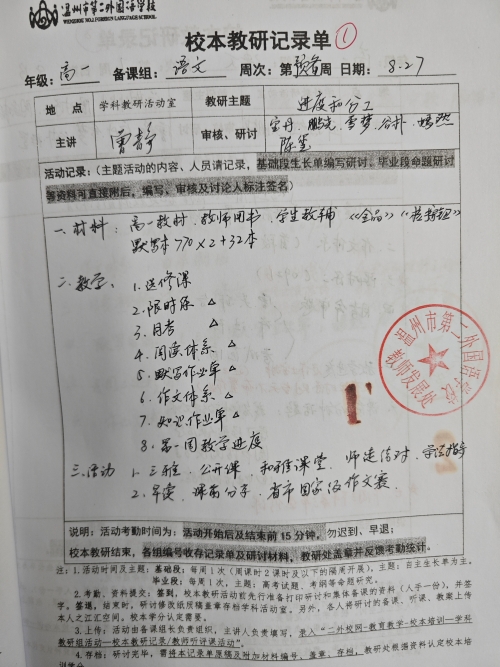 温州市第二外国语学校
WENZHOU NO.2 FOREIGN LANGUAGE SCHOOL
校本教研记录单 ①
年级：高一 备课组：语文 周次：第预备周 日期：8.27
地 点 学科教研活动室 教研主题 进度和分工
主讲 曾静 审核、研讨
活动记录：（主题活动的内容、人员请记录，基础段生长单编写研讨、毕业段命题研讨
等资料可直接附后，编写、审核及讨论人标注签名）
一、材料：高一教材、教师用书、学生教辅《金品》
默写本770×2+32本
二、教学：1.选修课
2.限时练 △
3.月考 △
4.阅读体系
5.默写作业单 △
6.作文体系 △
7.知识作业单 △
8.第一周教学进度
三、活动 1.三雅、公开课、和雅课堂、师徒结对、学法指导
2.早读、课前分享、省市国家级作文赛
温州市第二外国语学校
教师发展处
说明：活动考勤时间为：活动开始后及结束前15分钟，勿迟到、早退；
校本教研结束，各组编号收存记录单及研讨材料，教研处盖章并反馈考勤统计。
注：1.活动时间及主题：基础段：每周1次（周课时2课时及以下的隔周开展），主题：自主生长单为主。
毕业段：每周1次，主题：高考试题、考纲等命题研究。
2.考勤、资料提交：签到，校本教研活动前先行准备打印研讨和集体备课的资料（人手一份），并签
字，签退，结束时，研讨修改纸质稿盖章存档学科活动室。另外，各人将研讨的备课、听课、教案上传
本人之江汇空间，校本学分认定需要。
3.上传：活动由备课组长负责组织，主讲人负责填写，录入“二外校网-教育教学-校本培训—学科
教研组活动—校本教研记录/教师听评课活动”。
4.存档：研讨完毕，需将本记录单原稿及附加材料编号、盖章、存档，教研处根据资料认定校本培
训学分